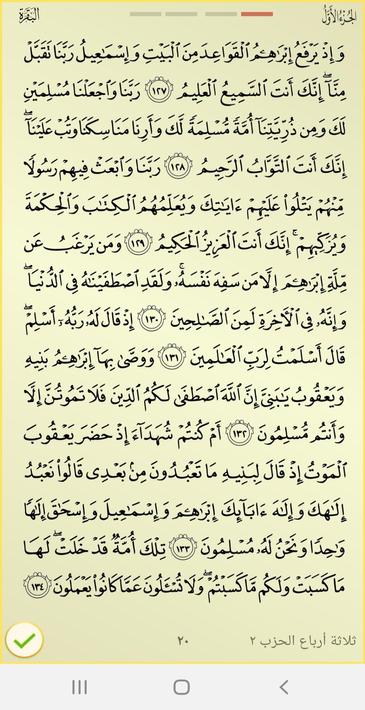 الجزء الأول
البقرة
وَإِذۡ يَرۡفَعُ إِبۡرَٰهِـۧمُ ٱلۡقَوَاعِدَ مِنَ ٱلۡبَيۡتِ وَإِسۡمَٰعِيلُ رَبَّنَا تَقَبَّلۡ
مِنَّآۖ إِنَّكَ أَنتَ ٱلسَّمِيعُ ٱلۡعَلِيمُ ١٢٧ رَبَّنَا وَٱجۡعَلۡنَا مُسۡلِمَيۡنِ
لَكَ وَمِن ذُرِّيَّتِنَآ أُمَّةٗ مُّسۡلِمَةٗ لَّكَ وَأَرِنَا مَنَاسِكَنَا وَتُبۡ عَلَيۡنَآۖ
إِنَّكَ أَنتَ ٱلتَّوَّابُ ٱلرَّحِيمُ ١٢٨ رَبَّنَا وَٱبۡعَثۡ فِيهِمۡ رَسُولٗا
مِّنۡهُمۡ يَتۡلُواْ عَلَيۡهِمۡ ءَايَٰتِكَ وَيُعَلِّمُهُمُ ٱلۡكِتَٰبَ وَٱلۡحِكۡمَةَ
وَيُزَكِّيهِمۡۖ إِنَّكَ أَنتَ ٱلۡعَزِيزُ ٱلۡحَكِيمُ ١٢٩ وَمَن يَرۡغَبُ عَن
مِّلَّةِ إِبۡرَٰهِـۧمَ إِلَّا مَن سَفِهَ نَفۡسَهُۥۚ وَلَقَدِ ٱصۡطَفَيۡنَٰهُ فِي ٱلدُّنۡيَاۖ
وَإِنَّهُۥ فِي ٱلۡأٓخِرَةِ لَمِنَ ٱلصَّٰلِحِينَ ١٣٠ إِذۡ قَالَ لَهُۥ رَبُّهُۥٓ أَسۡلِمۡۖ
قَالَ أَسۡلَمۡتُ لِرَبِّ ٱلۡعَٰلَمِينَ ١٣١ وَوَصَّىٰ بِهَآ إِبۡرَٰهِـۧمُ بَنِيهِ
وَيَعۡقُوبُ يَٰبَنِيَّ إِنَّ ٱللَّهَ ٱصۡطَفَىٰ لَكُمُ ٱلدِّينَ فَلَا تَمُوتُنَّ إِلَّا
وَأَنتُم مُّسۡلِمُونَ ١٣٢ أَمۡ كُنتُمۡ شُهَدَآءَ إِذۡ حَضَرَ يَعۡقُوبَ
ٱلۡمَوۡتُ إِذۡ قَالَ لِبَنِيهِ مَا تَعۡبُدُونَ مِنۢ بَعۡدِيۖ قَالُواْ نَعۡبُدُ
إِلَٰهَكَ وَإِلَٰهَ ءَابَآئِكَ إِبۡرَٰهِـۧمَ وَإِسۡمَٰعِيلَ وَإِسۡحَٰقَ إِلَٰهٗا
وَٰحِدٗا وَنَحۡنُ لَهُۥ مُسۡلِمُونَ ١٣٣ تِلۡكَ أُمَّةٞ قَدۡ خَلَتۡۖ لَهَا
مَا كَسَبَتۡ وَلَكُم مَّا كَسَبۡتُمۡۖ وَلَا تُسۡـَٔلُونَ عَمَّا كَانُواْ يَعۡمَلُونَ ١٣٤
ثلاثة أرباع الحزب ٢
٢٠